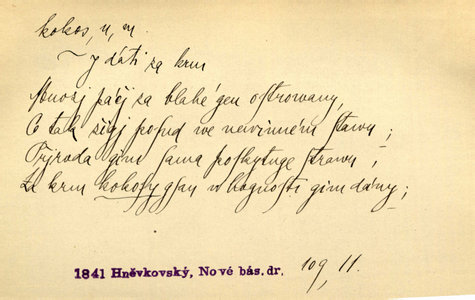 kokos, u, m.
~ y dáti za krm
Mnozj páčj za blahé gen ostrowany,
Co tak žigj posud we newinném stawu;
Přjroda gim sama poskytuge strawu,
Za krm kokosy gsau w hognosti gim dány;
1841 Hněvkovský, Nové bás. dr. 109, 11.